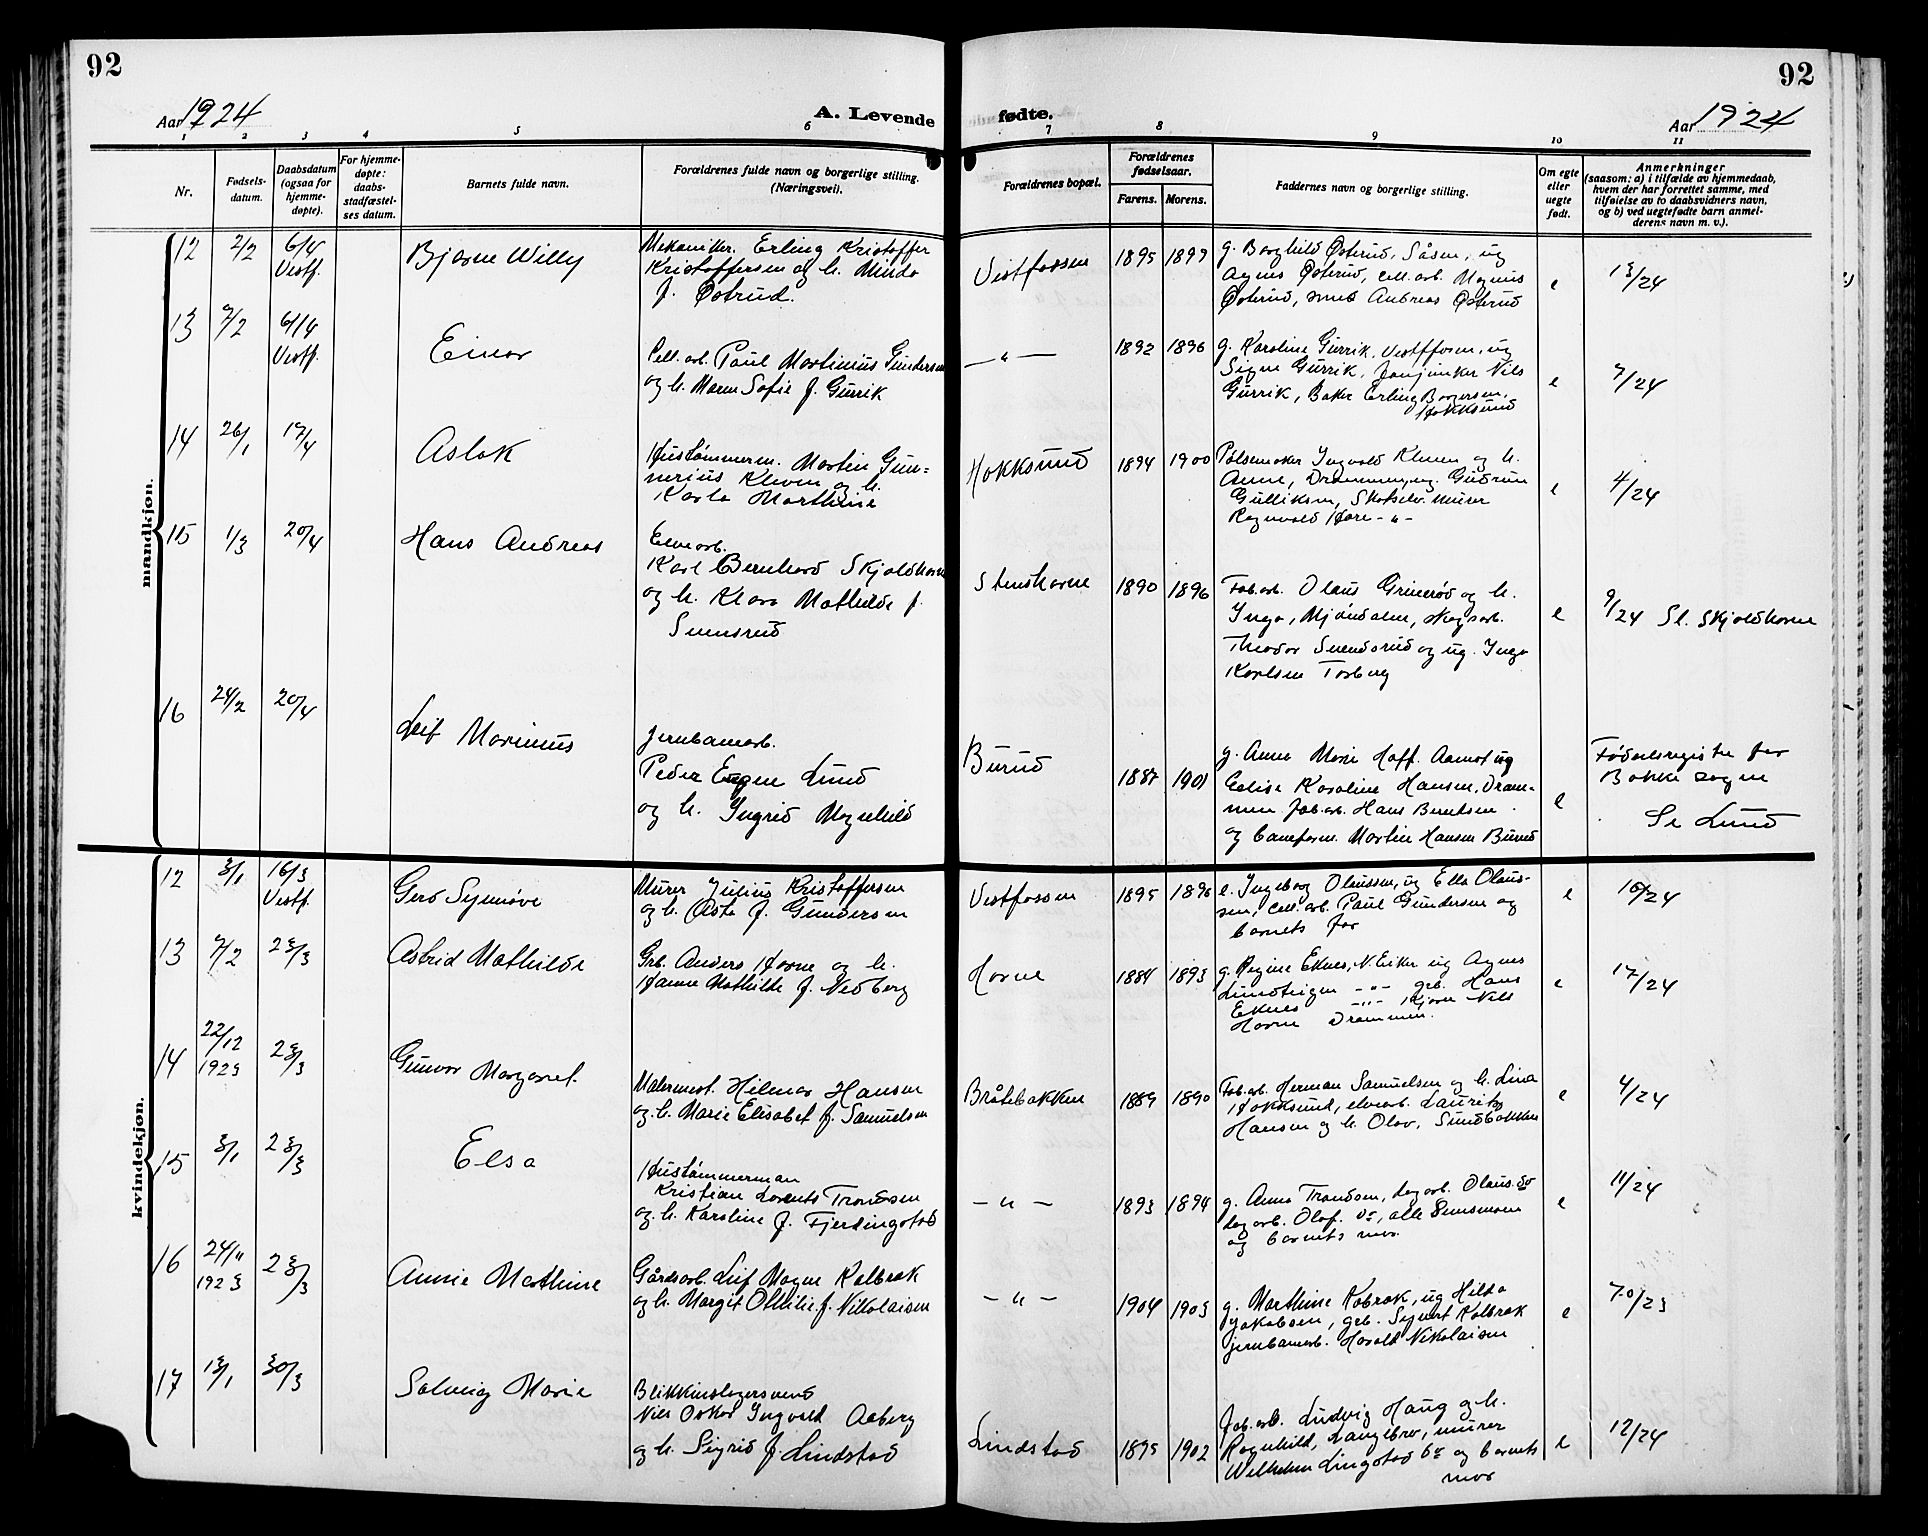 92
92
Aar 1924
A. Levende
fødte.
Aar 1924
1 2 3 4 5 6 7 8 9 10 11
Nr.
Fødsels-
datum.
Daabsdatum
(ogsaa for
hjemme-
døpte).
For hjemme-
døpte:
daabs-
stadfæstel-
ses datum.
Barnets fulde navn.
Forældrenes fulde navn og borgerlige stilling.
(Næringsvei).
Forældrenes bopæl.
Forældrenes
fødselsaar.
Farens. Morens.
Faddernes navn og borgerlige stilling.
Om egte
eller
uegte
født.
Anmerkninger
(saasom: a) i tilfælde av hjemmedaab,
hvem der har forrettet samme, med
tilføielse av to daabsvidners navn,
og b) ved uegtefødte barn anmel-
derens navn m. v.).
mandkjøn.
12
2/2
6/4
Vestf.
Bjarne Willy
Mekaniker. Erling Kristoffer
Kristoffersen og h. Minda
f. Østrud.
Vestfossen
1895 1899
g. Borghild Østerud, Såsen, ug
Agnes Østerud, cell. arb. Magnus
Østerud, smed Andreas Østerud
e
13/24
13
7/2
6/4
Vestf.
Einar
Cell. arb. Paul Martinius Gundersen
og h. Maren Sofie f. Gurrik
— " —
1892 1896
g. Karoline Gurrik, Vestffosen, ug
Signe Gurrik, Nils
Gurrik, Baker Erling Borgersen,
Hokksund
e
7/24
14
26/1
17/4
Aslak
Hustømmerm. Martin Gun=
nerius Kleven og h.
Karla Marthine
Hokksund
1894 1900
Pølsemaker Ingvald Kleven og h.
Anne, Drammen, ug. Gudrun
Gulliksen, Skotselv. murer
Ragnvald Hære - " -
e
4/24
15
1/3
20/4
Hans Andreas
Elvearb.
Karl Bernhard Skjoldhorne
og h. Klara Mathilde f.
Svensrud
Stenshorne
1890 1896
Fab.arb. Olaus Grinerød og h.
Inga, Mjøndalen, skogsarb.
Theodor Svendsrud og ug. Inga
Karlsen Torberg
e
9/24 Sl. Skjoldhorne
16
24/2
20/4
Leif Marinius
Jernbanearb.
Peder Eugen Lund
og h. Ingrid Magnhild
Burud
1887 1901
g. Anna Marie Hoff. Aamot ug
Edise Karoline Hansen, Dram=
men fab.arb. Hans Berntsen
og baneform. Martin Hansen Burud
e
Fødselsregistr for
Bakke sogn
Sl Lund
kvindekjøn.
12
3/1
16/3
Vestf.
Gerd Synnøve
Murer Julius Kristoffersen
og h. Åsta f. Gundersen
Vestfossen
1895 1896
e. Ingeborg Olaussen, ug Ella Olaus-
sen, cell. arb. Paul Gundersen og
barnets far
e
10/24
13
7/2
23/3
Astrid Mathilde
Grb. Anders Horne og h.
Hanna Mathilde f. Nedberg
Horne
1884 1893
g. Regine Eknes, N. Eiker ug Agnes
Lundteigen - " - grb. Hans
Eknes - " - Nils
Horne Drammen.
e
17/24
14
22/12
1923
23/3
Gunvor Margaret.
Malermest. Hilmar Hansen
og. h. Marie Elisabet f. Samuelsen
Bråtebakken
1889 1890
Fab.arb. Herman Samuelsen og h. Lina
Hokksund, elvearb. Lauritz
Hansen og h. Olav. Sundbakken
e
4/24
15
3/1
23/3
Elsa
Hustømmerman
Kristian Lorents Trondsen
og. h. Karoline f. Fjerdingstad
— " —
1893 1894
g. Anna Trondsen, dagarb. Olaus. do
dagarb. Olaf. do, alle Sunsmoen
og barnets mor.
e
11/24
16
24/11
1923
23/3
Annie Marthine
Gårdsarb. Leif Magne Kolbræk
og h. Margit Othilie f. Nikolaisen
— " —
1904 1903
g. Marthine Kobræk, ug Hilda
Jakobsen, grb. Sigvart Kolbræk
jernbanearb. Harald Nikolaisen
e
70/23
17
13/1
30/3
Solveig Marie
Blikkenslagersvend
Nils Oskar Ingvald Aaberg
og h. Sigrid f. Lindstad
Lindstad
1895 1902
Fab.arb. Ludvig Haug og h.
Ragnhild, Langebro, murer
Wilhelm Lingstad do og barnets
mor
e
12/24